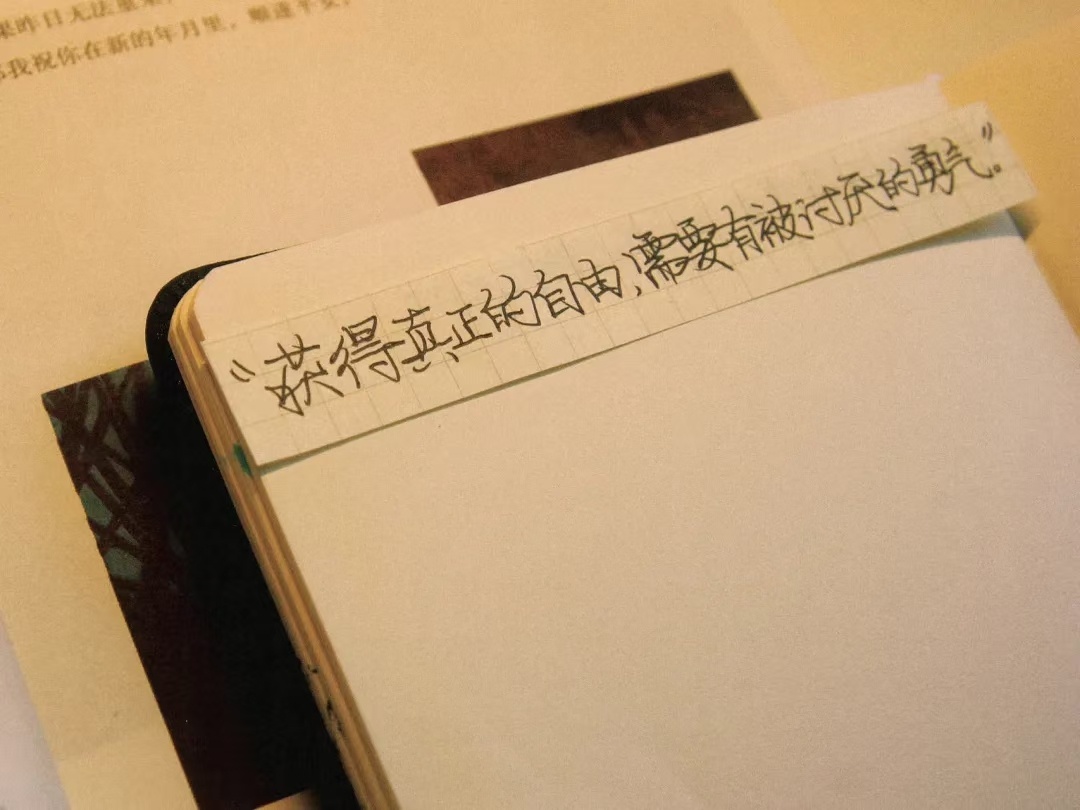 果昨日无法重来,
我祝你在新的年月里,顺遂平安,
“获得真正的自由,需要有被讨厌的勇气。”